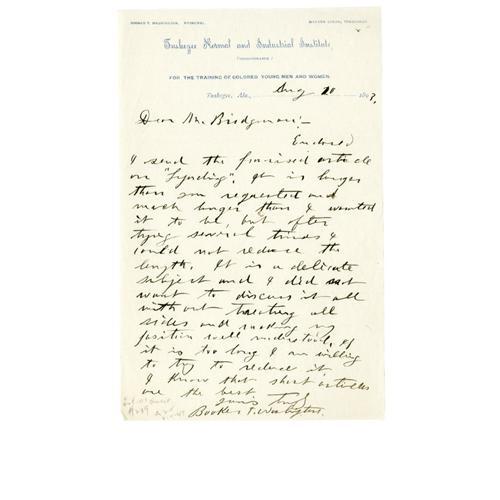 BOOKER T. WASHINGTON, PRINCIPAL. WARREN LOGAN, TREASURER.
Tuskegee Normal and Industrial Institute,
(INCORPORATED)
FOR THE TRAINING OF COLORED YOUNG MEN AND WOMEN.
Tuskegee, Ala., Aug 20 1899.
Dear Mr. Bridgman:-
Enclosed
I send the promised article
on "Lynching". It is longer
than you requested and
much longer than I wanted
it to be, but after
trying several times I
could not reduce the
length. It is a delicate
subject and I did not
want to discuss it all
without treating all
sides and making my
position well understood. If
it is too long I am willing
to try to reduce it.
I know that short articles
are the best.
Yours Truly
Booker T. Washington.